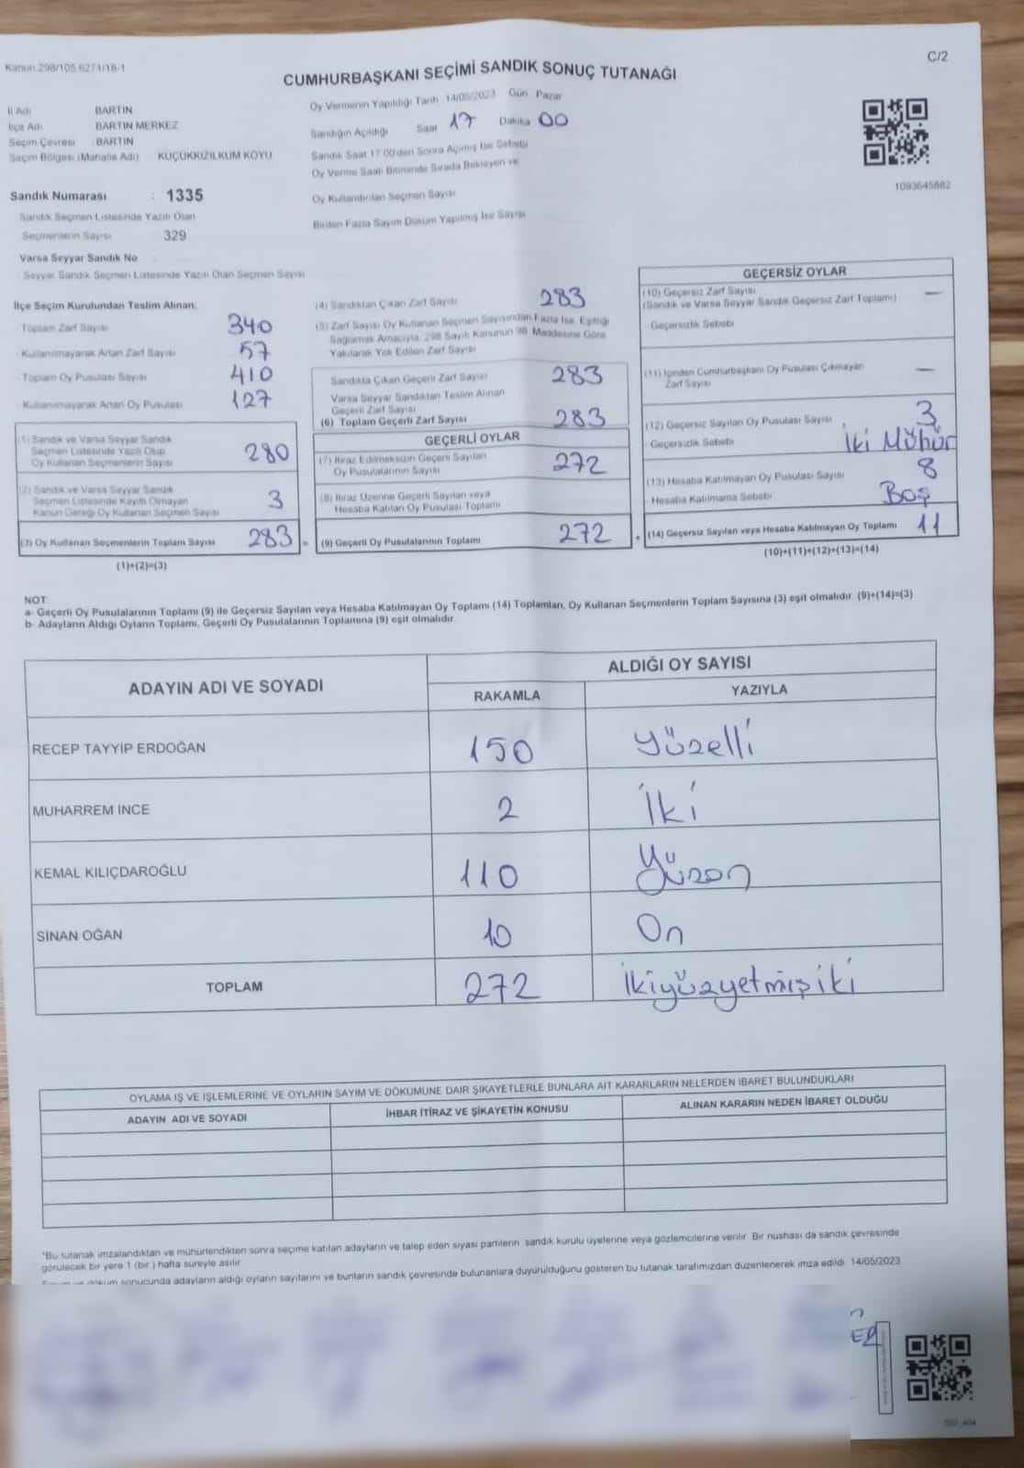 Kanun 298/105 6271/18-1
C/2
CUMHURBAŞKANI SEÇİMİ SANDIK SONUÇ TUTANAĞI
İl Adı BARTIN
İlçe Adı BARTIN MERKEZ
Seçim Çevresi BARTIN
Seçim Bölgesi (Mahalle Adı) KÜÇÜKKIZILKUM KÖYÜ
Oy Vermenin Yapıldığı Tarih 14/05/2023 Gün Pazar
Sandığın Açıldığı Saat 17 Dakika 00
Sandık Saat 17:00'den Sonra Açılmış İse Sebebi
Oy Verme Saati Bitiminde Sırada Bekleyen ve
Oy Kullandırılan Seçmen Sayısı
Birden Fazla Sayım Döküm Yapılmış İse Sayısı
1093645882
Sandık Numarası : 1335
Sandık Seçmen Listesinde Yazılı Olan
Seçmenlerin Sayısı 329
Varsa Seyyar Sandık No
Seyyar Sandık Seçmen Listesinde Yazılı Olan Seçmen Sayısı
İlçe Seçim Kurulundan Teslim Alınan:
Toplam Zarf Sayısı 340
Kullanılmayarak Artan Zarf Sayısı 57
Toplam Oy Pusulası Sayısı 410
Kullanılmayarak Artan Oy Pusulası 127
(1) Sandık ve Varsa Seyyar Sandık
Seçmen Listesinde Yazılı Olup
Oy Kullanan Seçmenlerin Sayısı 280
(2) Sandık ve Varsa Seyyar Sandık
Seçmen Listesinde Kayıtlı Olmayan
Kanun Gereği Oy Kullanan Seçmen Sayısı 3
(3) Oy Kullanan Seçmenlerin Toplam Sayısı 283
(1)+(2)=(3)
(4) Sandıktan Çıkan Zarf Sayısı 283
(5) Zarf Sayısı Oy Kullanan Seçmen Sayısından Fazla İse, Eşitliği
Sağlamak Amacıyla, 298 Sayılı Kanunun 98. Maddesine Göre
Yakılarak Yok Edilen Zarf Sayısı
Sandıkta Çıkan Geçerli Zarf Sayısı 283
Varsa Seyyar Sandıktan Teslim Alınan
Geçerli Zarf Sayısı
(6) Toplam Geçerli Zarf Sayısı 283
GEÇERLİ OYLAR
(7) İtiraz Edilmeksizin Geçerli Sayılan
Oy Pusulalarının Sayısı 272
(8) İtiraz Üzerine Geçerli Sayılan veya
Hesaba Katılan Oy Pusulası Toplamı
(9) Geçerli Oy Pusulalarının Toplamı 272
GEÇERSİZ OYLAR
(10) Geçersiz Zarf Sayısı —
(Sandık ve Varsa Seyyar Sandık Geçersiz Zarf Toplamı)
Geçersizlik Sebebi
(11) İçinden Cumhurbaşkanı Oy Pusulası Çıkmayan
Zarf Sayısı —
(12) Geçersiz Sayılan Oy Pusulası Sayısı 3
Geçersizlik Sebebi İki Mühür
(13) Hesaba Katılmayan Oy Pusulası Sayısı 8
Hesaba Katılmama Sebebi Boş
(14) Geçersiz Sayılan veya Hesaba Katılmayan Oy Toplamı 11
(10)+(11)+(12)+(13)=(14)
NOT:
a- Geçerli Oy Pusulalarının Toplamı (9) ile Geçersiz Sayılan veya Hesaba Katılmayan Oy Toplamı (14) Toplamları, Oy Kullanan Seçmenlerin Toplam Sayısına (3) eşit olmalıdır. (9)+(14)=(3)
b- Adayların Aldığı Oyların Toplamı, Geçerli Oy Pusulalarının Toplamına (9) eşit olmalıdır.
ADAYIN ADI VE SOYADI
ALDIĞI OY SAYISI
RAKAMLA YAZIYLA
RECEP TAYYİP ERDOĞAN 150 Yüzelli
MUHARREM İNCE 2 İki
KEMAL KILIÇDAROĞLU 110 Yüzon
SİNAN OĞAN 10 On
TOPLAM 272 İkiyüzyetmişiki
OYLAMA İŞ VE İŞLEMLERİNE VE OYLARIN SAYIM VE DÖKÜMÜNE DAİR ŞİKAYETLERLE BUNLARA AİT KARARLARIN NELERDEN İBARET BULUNDUKLARI
ADAYIN ADI VE SOYADI İHBAR İTİRAZ VE ŞİKAYETİN KONUSU ALINAN KARARIN NEDEN İBARET OLDUĞU
*Bu tutanak imzalandıktan ve mühürlendikten sonra seçime katılan adayların ve talep eden siyasi partilerin sandık kurulu üyelerine veya gözlemcilerine verilir. Bir nüshası da sandık çevresinde
görülecek bir yere 1 (bir) hafta süreyle asılır.
döküm sonucunda adayların aldığı oyların sayılarını ve bunların sandık çevresinde bulunanlara duyurulduğunu gösteren bu tutanak tarafımızdan düzenlenerek imza edildi. 14/05/2023